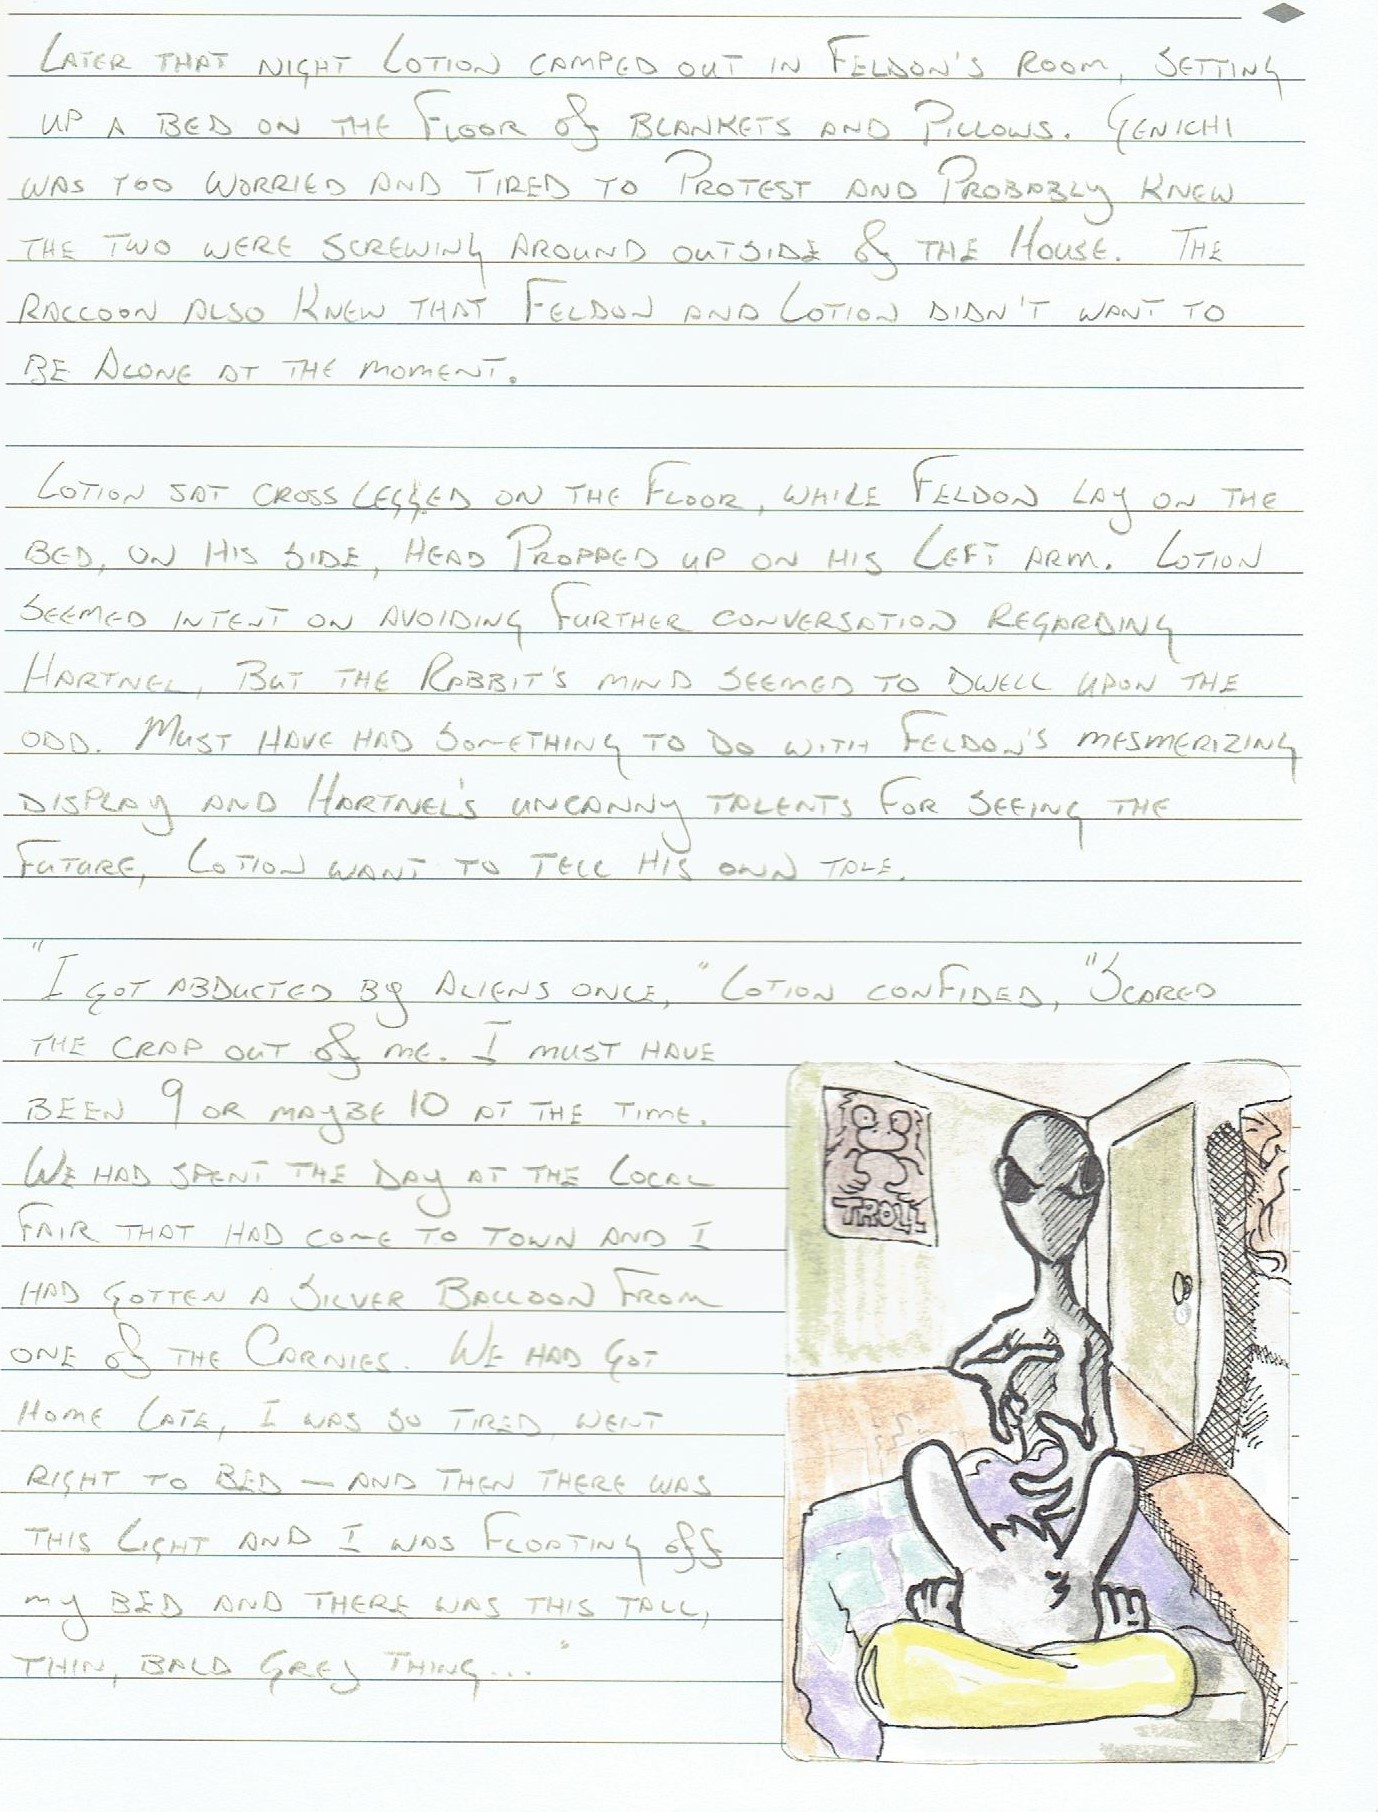 Later that night Lotion camped out in Feldon's room, setting
up a bed on the floor of blankets and pillows. Genichi
was too worried and tired to protest and probably knew
the two were screwing around outside of the house. The
raccoon also knew that Feldon and Lotion didn't want to
be alone at the moment.
Lotion sat cross legged on the floor, while Feldon lay on the
bed, on his side, head propped up on his left arm. Lotion
seemed intent on avoiding further conversation regarding
Hartnel, but the Rabbit's mind seemed to dwell upon the
odd. Must have had something to do with Feldon's mesmerizing
display and Hartnel's uncanny talents for seeing the
future, Lotion want to tell his own tale.
"I got abducted by aliens once," Lotion confided, "Scared
the crap out of me. I must have
been 9 or maybe 10 at the time.
We had spent the day at the local
fair that had come to town and I
had gotten a silver balloon from
one of the carnies. We had got
home late, I was so tired, went
right to bed – and then there was
this light and I was floating off
my bed and there was this tall,
thin, bald grey thing..."
TROLL